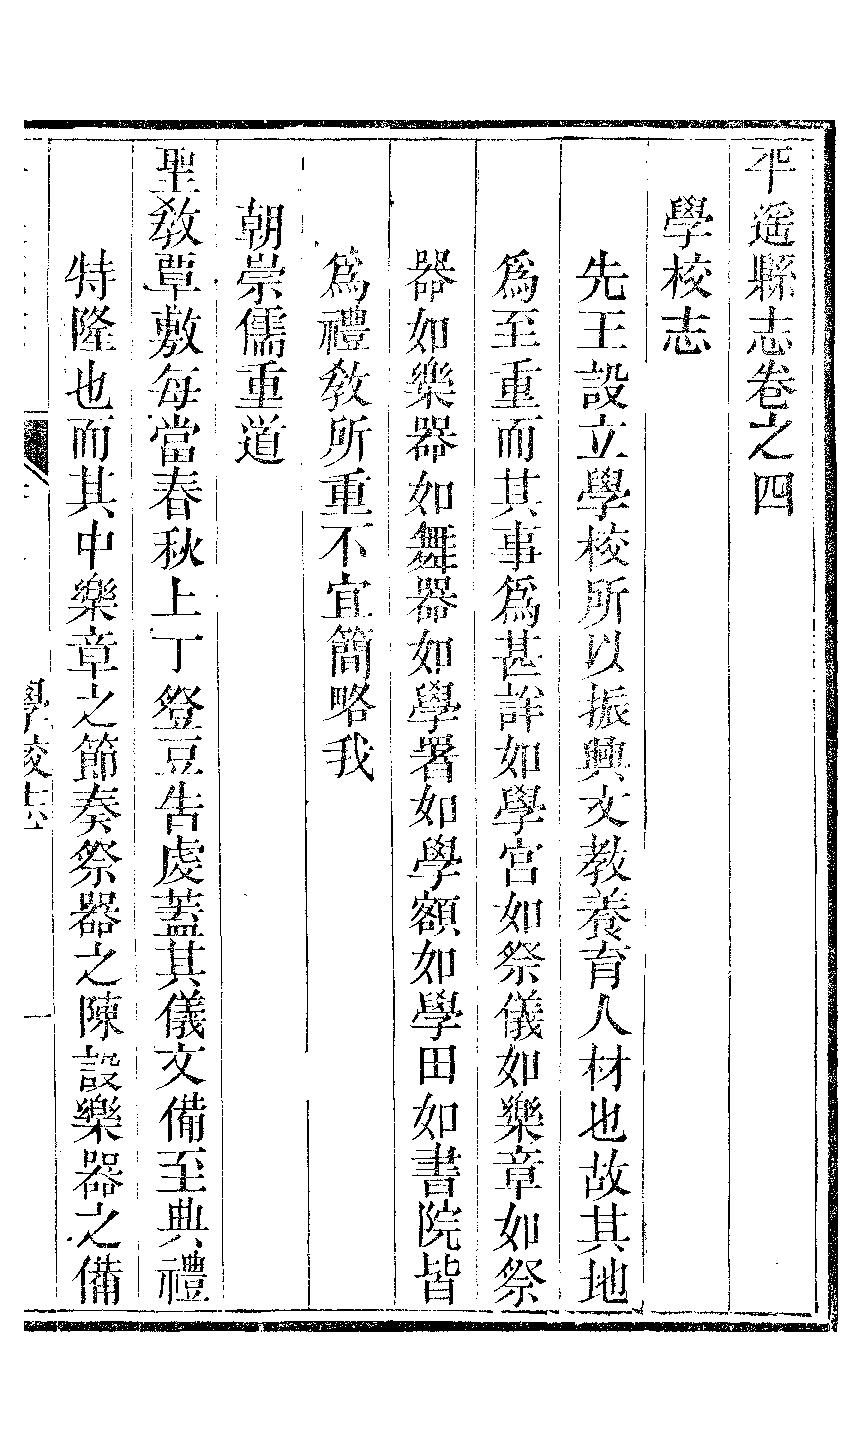 平遥縣志卷之四
學校志
先王設立學校所以振興文教養育人材也故其地
爲至重而其事爲甚詳如學宮如祭儀如樂章如祭
器如樂器如舞器如學署如學額如學田如書院皆
爲禮教所重不宜簡略我
朝崇儒重道
聖教覃敷每當春秋上丁登豆告虔蓋其儀文備至典禮
特隆也而其中樂章之節奏祭器之陳設樂器之備
學校志
一